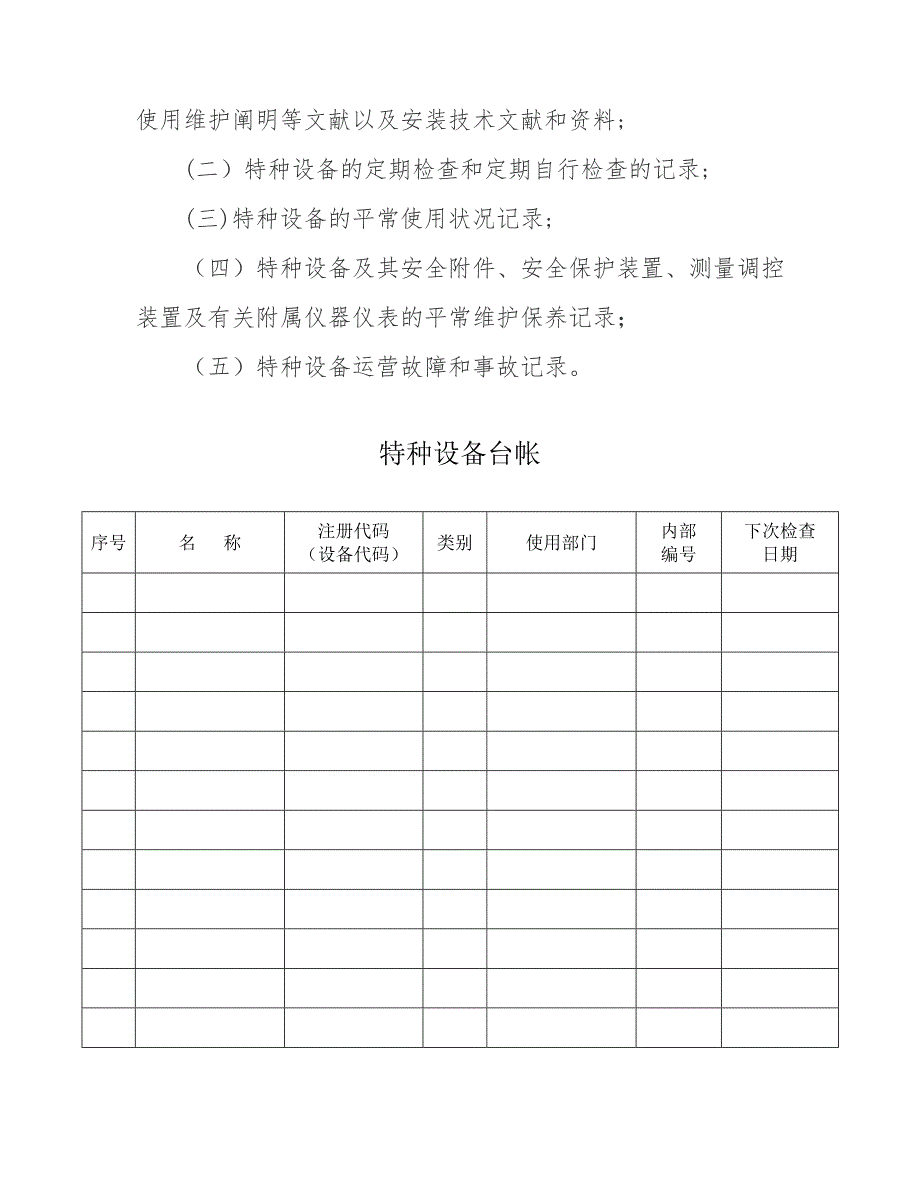 使用维护阐明等文献以及安装技术文献和资料；
(二）特种设备的定期检查和定期自行检查的记录；
(三)特种设备的平常使用状况记录；
（四）特种设备及其安全附件、安全保护装置、测量调控
装置及有关附属仪器仪表的平常维护保养记录；
（五）特种设备运营故障和事故记录。
特种设备台帐
序号 名 称 注册代码（设备代码） 类别 使用部门 内部编号 下次检查日期